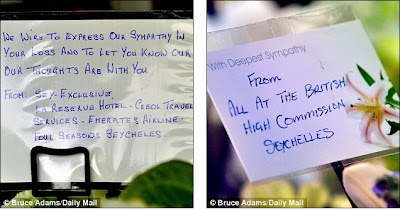 WE WISH TO EXPRESS OUR SYMPATHY IN
YOUR LOSS AND TO LET YOU KNOW OUR
OUR THOUGHTS ARE WITH YOU
FROM: SEY-EXCLUSIVE,
LA RESERVE HOTEL - CREOL TRAVEL
SERVICES - EMERATES AIRLINE -
FOUR SEASONS SEYCHELES.
© Bruce Adams/Daily Mail
With Deepest Sympathy
FROM
ALL AT THE BRITISH
HIGH COMMISSION
SEYCHELLES
© Bruce Adams/Daily Mail